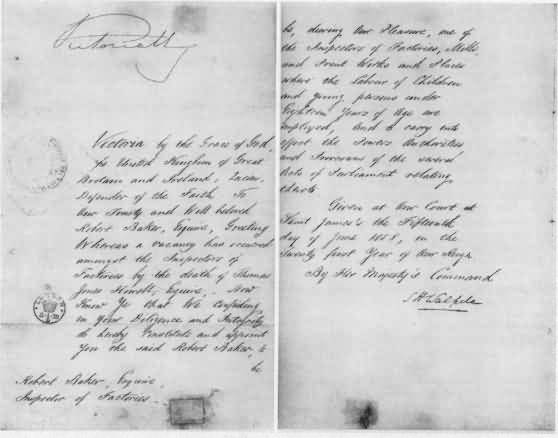 Victoria R
Victoria by the Grace of God,
of the United Kingdom of Great
Britain and Ireland, Queen,
Defender of the Faith. To
Our Trusty and Well beloved
Robert Baker, Esquire, Greeting
Whereas a vacancy has occurred
amongst the Inspectors of
Factories by the death of Thomas
Jones Howell, Esquire, Now
Know Ye that We confiding
in your Diligence and Integrity
do hereby Constitute and appoint
You the said Robert Baker, to
be
Robert Baker, Esquire
Inspector of Factories.
be, during Our Pleasure, one of
the Inspectors of Factories, Mills
and Print Works and Places
where the Labour of Children
and young persons under
Eighteen Years of Age are
employed, And to carry into
effect the Powers Authorities
and Provisions of the several
Acts of Parliament relating
thereto
Given at Our Court at
Saint James's the Fifteenth
day of June 1858, in the
Twenty first Year of Our Reign
By Her Majesty's Command
S H Walpole